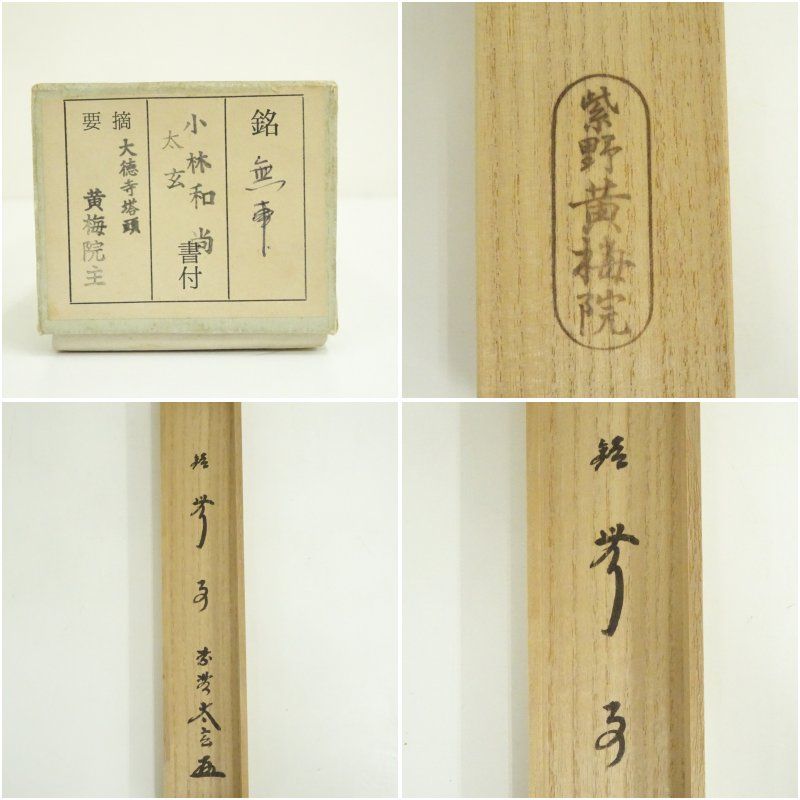 銘 無事
小林太玄和尚 書付
摘要 大徳寺塔頭
黄梅院主
紫野黄梅院
銘 無事
紫野 太玄
銘 無事